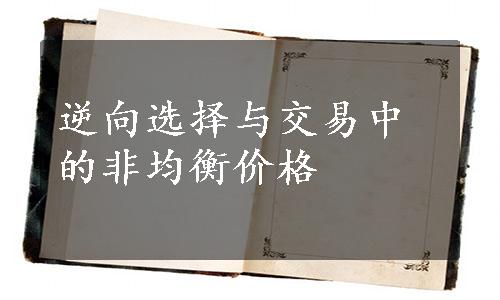 逆向选择与交易中
的非均衡价格